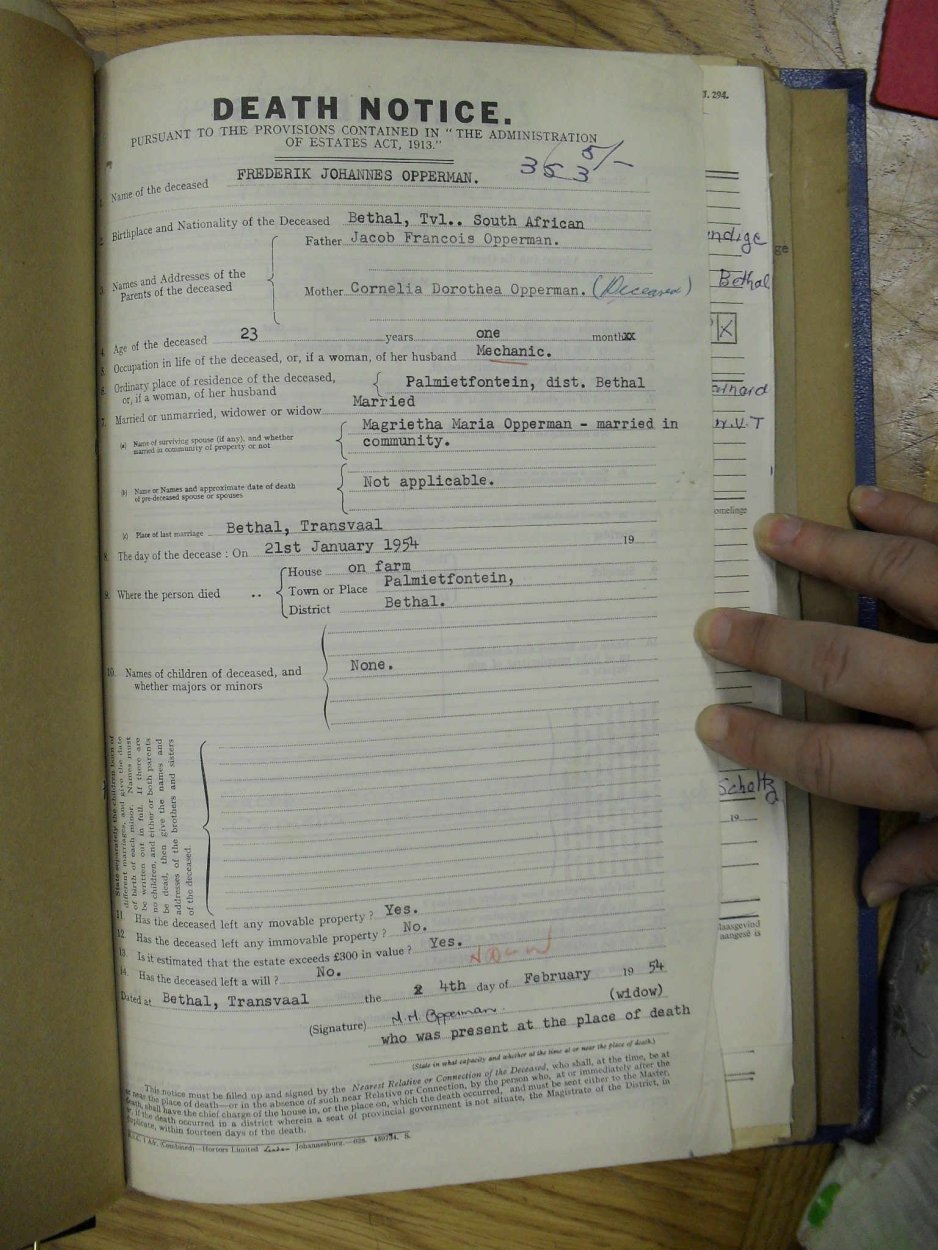 DEATH NOTICE.
PURSUANT TO THE PROVISIONS CONTAINED IN "THE ADMINISTRATION
OF ESTATES ACT, 1913."
J. 294.
353 5/-
1. Name of the deceased FREDERIK JOHANNES OPPERMAN.
2. Birthplace and Nationality of the Deceased Bethal, Tvl.. South African
3. Names and Addresses of the Parents of the deceased
Father Jacob Francois Opperman.
Mother Cornelia Dorothea Opperman. (Deceased)
4. Age of the deceased 23 years one monthxx
5. Occupation in life of the deceased, or, if a woman, of her husband Mechanic.
6. Ordinary place of residence of the deceased,
or, if a woman, of her husband Palmietfontein, dist. Bethal
7. Married or unmarried, widower or widow Married
(a) Name of surviving spouse (if any), and whether
married in community of property or not
Magrietha Maria Opperman - married in
community.
(b) Name or Names and approximate date of death
of pre-deceased spouse or spouses
Not applicable.
(c) Place of last marriage Bethal, Transvaal
8. The day of the decease : On 21st January 1954 19
9. Where the person died ..
House on farm
Town or Place Palmietfontein,
District Bethal.
10. Names of children of deceased, and
whether majors or minors
None.
State separately the children born of
different marriages, and give the date
of birth of each minor. Names must
be written out in full. If there are
no children, and either or both parents
be dead, then give the names and
addresses of the brothers and sisters
of the deceased.
11. Has the deceased left any movable property ? Yes.
12. Has the deceased left any immovable property ? No.
13. Is it estimated that the estate exceeds £300 in value ? Yes.
14. Has the deceased left a will ? No.
Dated at Bethal, Transvaal the 4th day of February 19 54
(Signature) M.M. Opperman. (widow)
who was present at the place of death
(State in what capacity and whether at the time at or near the place of death.)
This notice must be filled up and signed by the Nearest Relative or Connection of the Deceased, who shall, at the time, be at
or near the place of death—or in the absence of such near Relative or Connection, by the person who, at or immediately after the
death, shall have the chief charge of the house in, or the place on, which the death occurred, and must be sent either to the Master,
or, if the death occurred in a district wherein a seat of provincial government is not situate, the Magistrate of the District, in
duplicate, within fourteen days of the death.
(Combined)—Hortors Limited Johannesburg.
ndige
ge
Bethal
X
omelinge
Scholtz
19
laasgevind
aangesê is